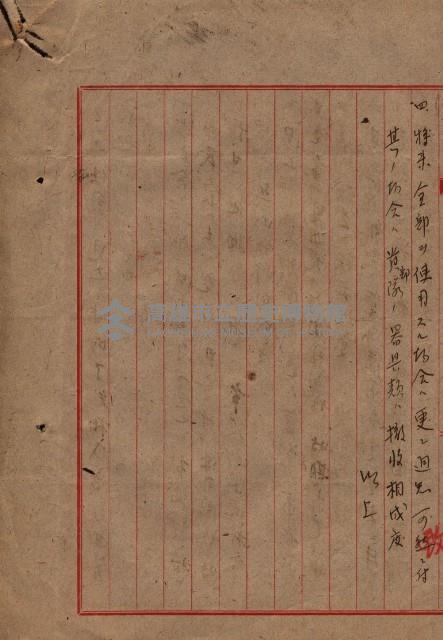 四、将来全部ヲ使用スル場合ハ更ニ通知可致ニ付
其ノ場合ハ貴部隊ノ器具類ハ撤收相成度
以上
高雄市立歷史博物館